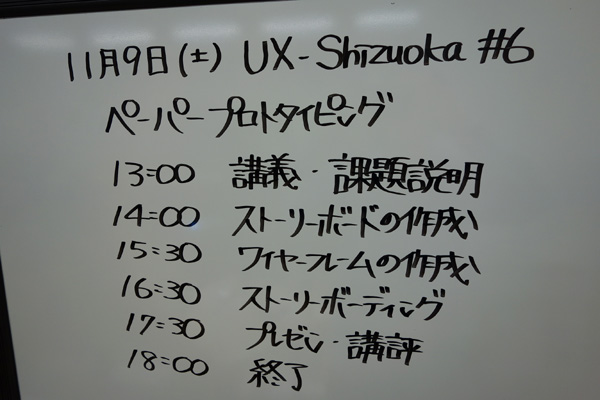 11月9日(土) UX-Shizuoka #6
ペーパープロトタイピング
13:00 講義・課題説明
14:00 ストーリーボードの作成
15:30 ワイヤーフレームの作成
16:30 ストーリーボーディング
17:30 プレゼン・講評
18:00 終了